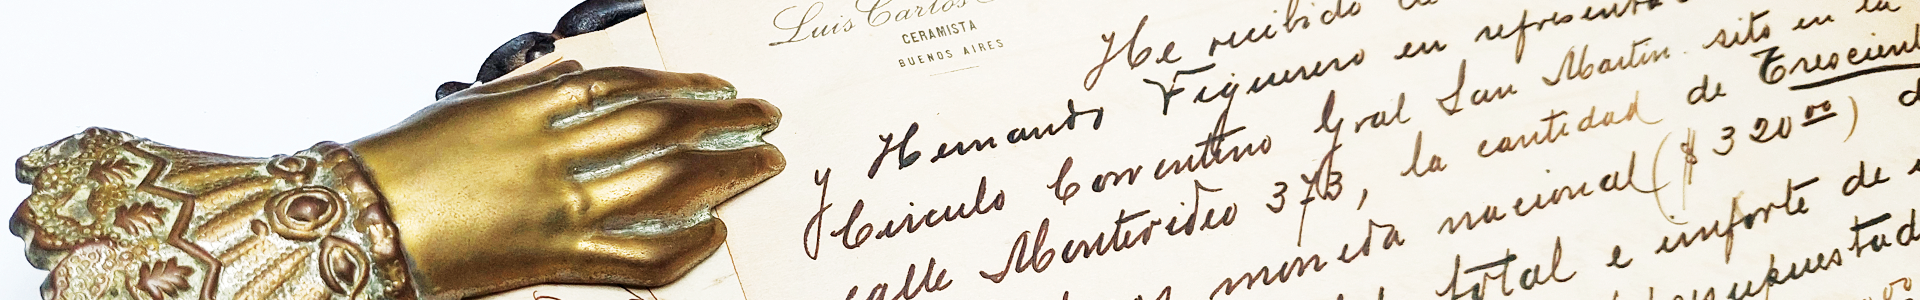 Luis Carlos
CERAMISTA
BUENOS AIRES
He recibido de
y Hernando Figuerero en represent
Círculo Correntino Gral San Martin sito en la
calle Montevideo 373, la cantidad de Trescient
moneda nacional ($ 320 00) d
total e importe de
supuestad